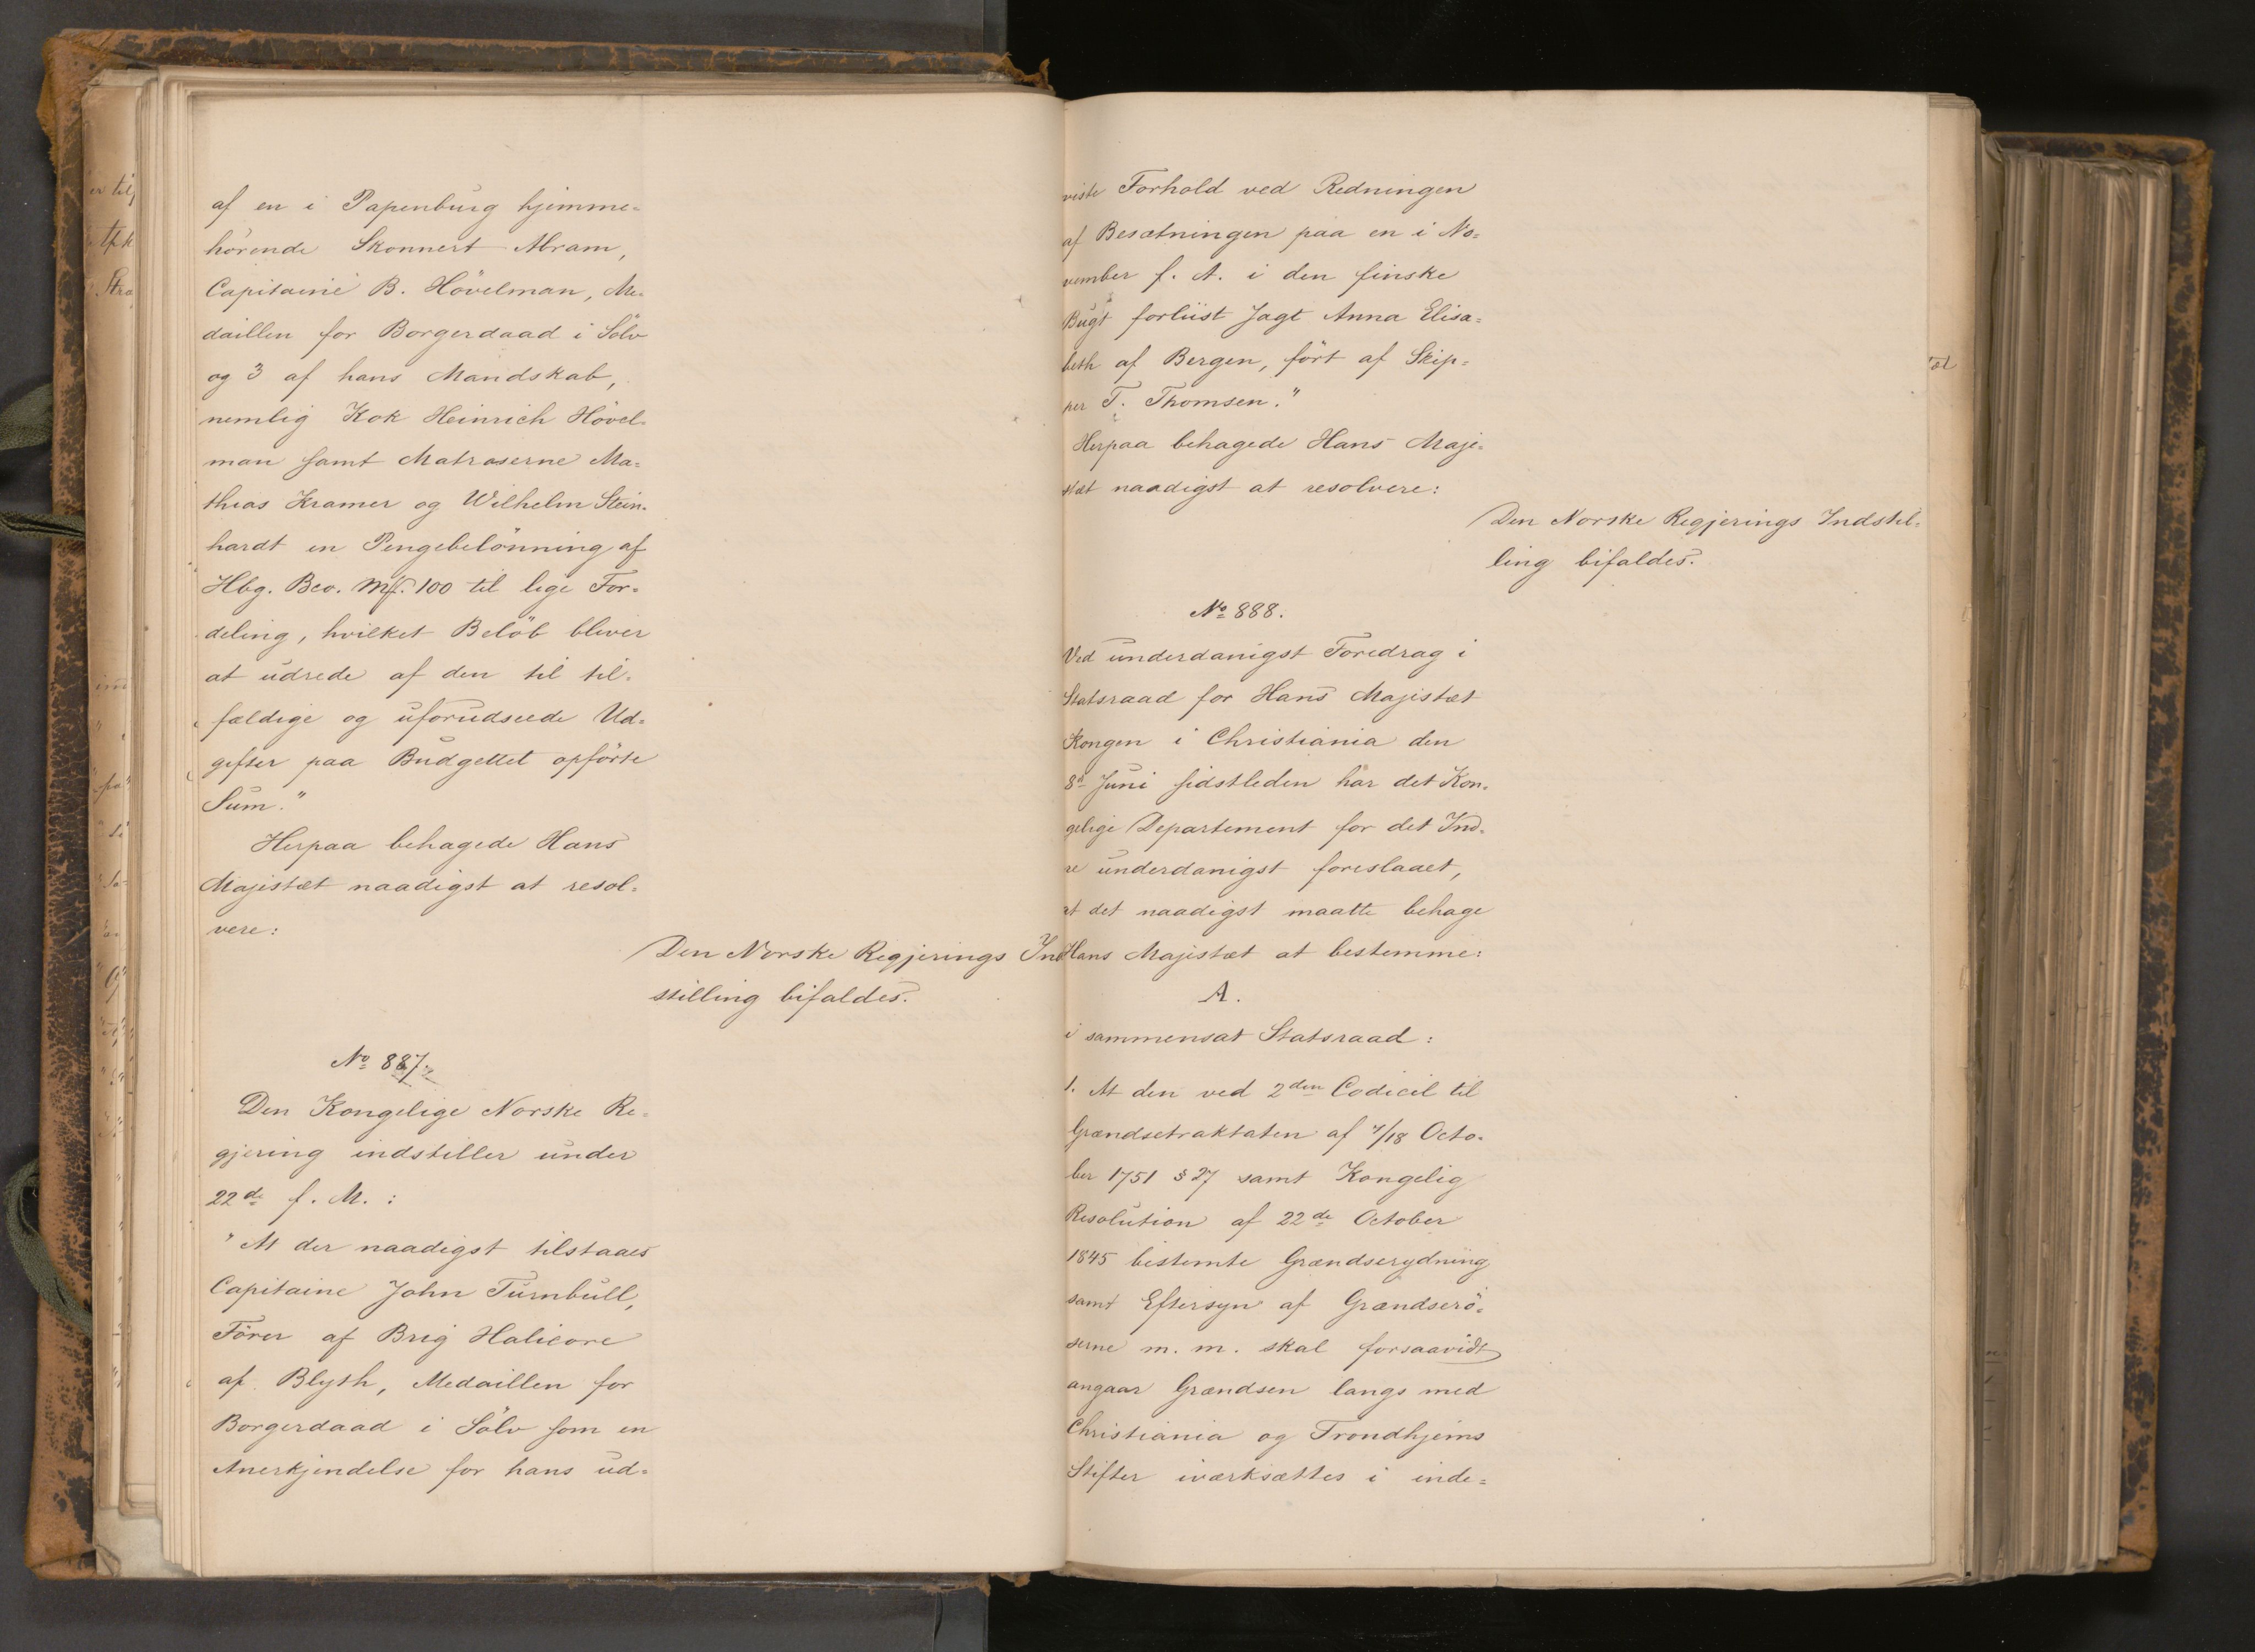 af en i Papenburg hjemme=
hörende Skonnert Abram,
Capitaine B. Hövelman, Me=
daillen for Borgerdaad i Sölv
og 3 af hans Mandskab,
nemlig Kok Heinrich Hövel=
man samt Matroserne Ma=
thias Kramer og Wilhelm Stein=
hardt en Pengebelönning af
Hbg. Bco. Mk. 100 til lige For=
deling, hvilket Belöb bliver
at udrede af den til til=
fældige og uforudseede Ud=
gifter paa Budgettet opförte
Sum."
Herpaa behagede Hans
Majestæt naadigst at resol=
vere:
Den Norske Regjerings Ind
stilling bifaldes.
No 887.
Den Kongelige Norske Re=
gjering indstiller under
22de f. M.:
"At der naadigst tilstaaes
Capitaine John Turnbull,
Förer af Brig Halicore
af Blyth, Medaillen for
Borgerdaad i Sölv som en
Anerkjendelse for hans ud=
viste Forhold ved Redningen
af Besætningen paa en i No=
vember f. A. i den finske
Bugt forliist Jagt Anna Elisa=
beth af Bergen, fört af Skip=
per T. Thomsen."
Herpaa behagede Hans Maje=
stæt naadigst at resolvere:
Den Norske Regjerings Indstil=
ling bifaldes.
No 888.
Ved underdanigst Foredrag i
Statsraad for Hans Majestæt
Kongen i Christiania den
8de Juni sidstleden har det Kon=
gelige Departement for det Ind=
re underdanigst foreslaaet,
at det naadigst maatte behage
Hans Majestæt at bestemme:
A.
i sammensat Statsraad:
1. At den ved 2den Codicil til
Grændsetraktaten af 7/18 Octo=
ber 1751 § 27 samt Kongelig
Resolution af 22de October
1845 bestemte Grændserydning
samt Eftersyn af Grændserö=
serne m. m. skal forsaavidt
angaar Grændsen langs med
Christiania og Trondhjems
Stifter iværksættes i inde=